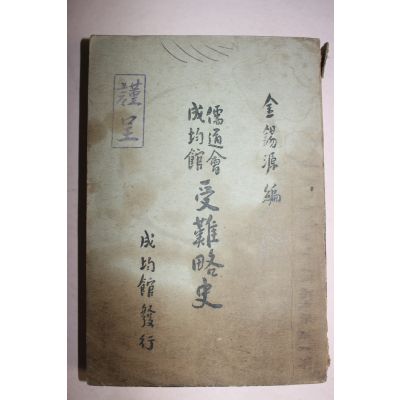 金錫源 編
儒道會
成均館
受難略史
成均館發行
謹呈